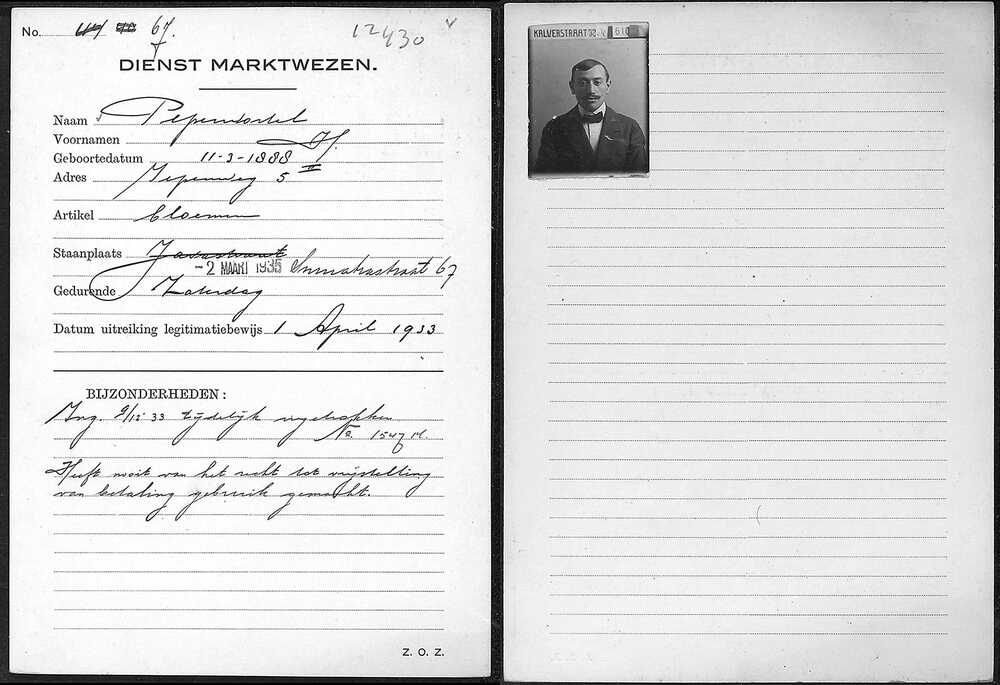 No. 44 90 67. 12430
DIENST MARKTWEZEN.
Naam Pependorstel
Voornamen H.
Geboortedatum 11-3-1888
Adres Iepenweg 5 II
Artikel bloemen
Staanplaats Javastraat
-2 MAART 1935 Sumatrastraat 67
Gedurende Zaterdag
Datum uitreiking legitimatiebewijs 1 April 1933
BIJZONDERHEDEN:
Ing. 9/12 33 tijdelijk ingetrokken
No. 1547 M.
Heeft nooit van het recht tot vrijstelling
van betaling gebruik gemaakt.
Z. O. Z.
KALVERSTRAAT